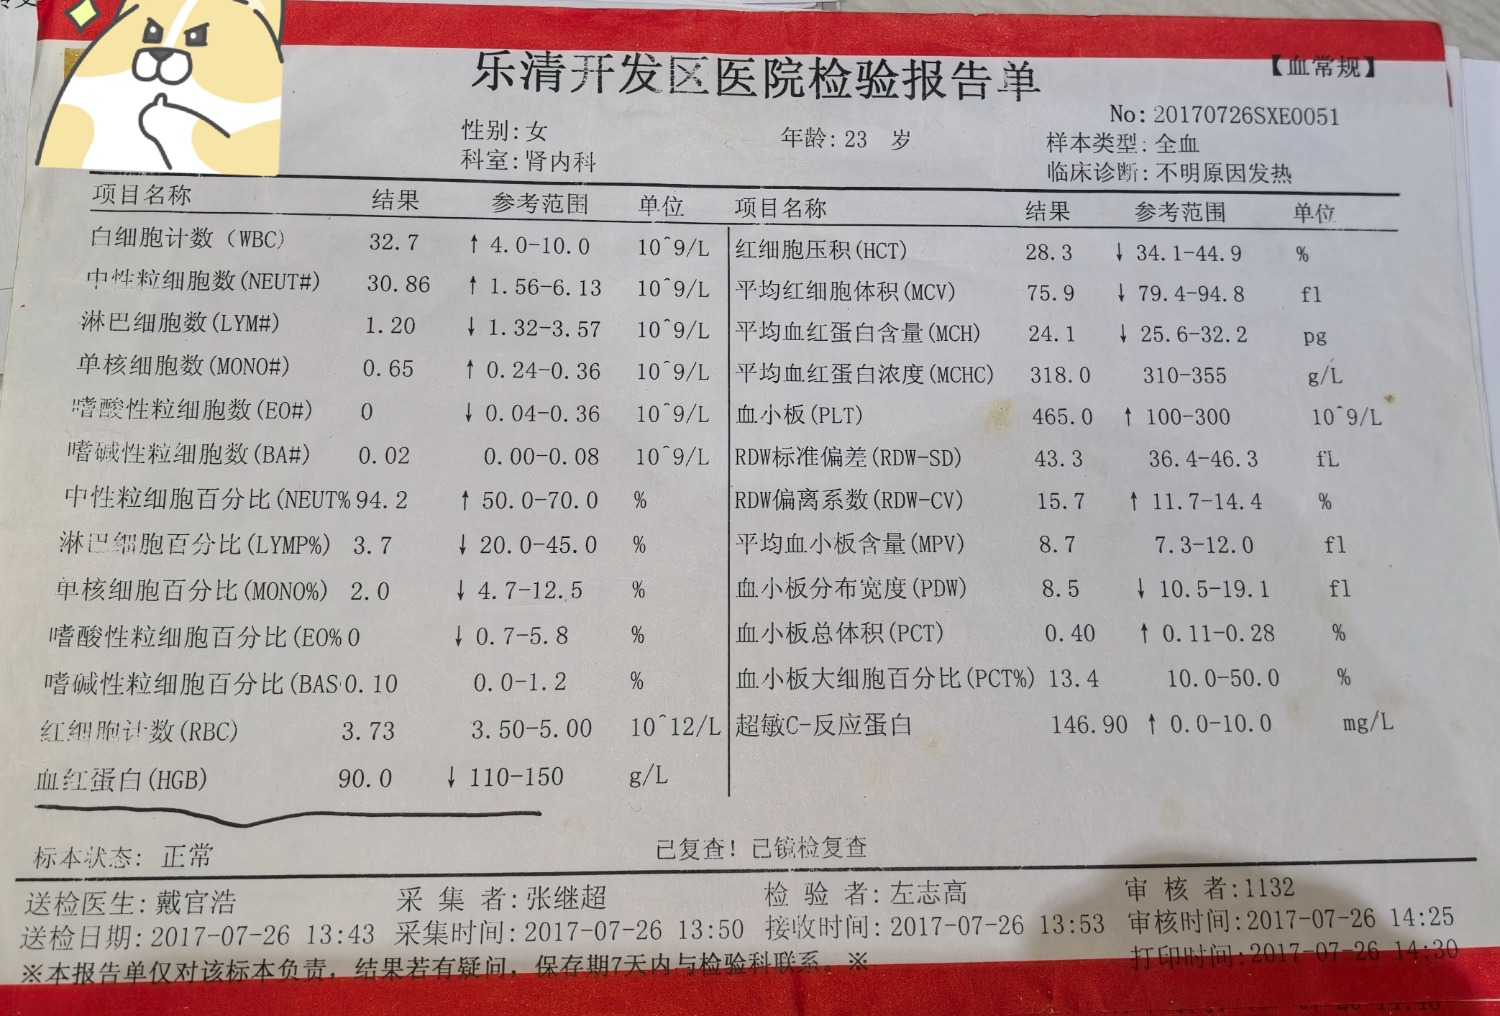 乐清开发区医院检验报告单
【血常规】
No: 20170726SXE0051
性别: 女 年龄: 23 岁 样本类型: 全血
科室: 肾内科 临床诊断: 不明原因发热
项目名称 结果 参考范围 单位 项目名称 结果 参考范围 单位
白细胞计数（WBC） 32.7 ↑ 4.0-10.0 10^9/L 红细胞压积(HCT) 28.3 ↓ 34.1-44.9 %
中性粒细胞数(NEUT#) 30.86 ↑ 1.56-6.13 10^9/L 平均红细胞体积(MCV) 75.9 ↓ 79.4-94.8 fl
淋巴细胞数(LYM#) 1.20 ↓ 1.32-3.57 10^9/L 平均血红蛋白含量(MCH) 24.1 ↓ 25.6-32.2 pg
单核细胞数(MONO#) 0.65 ↑ 0.24-0.36 10^9/L 平均血红蛋白浓度(MCHC) 318.0 310-355 g/L
嗜酸性粒细胞数(EO#) 0 ↓ 0.04-0.36 10^9/L 血小板(PLT) 465.0 ↑ 100-300 10^9/L
嗜碱性粒细胞数(BA#) 0.02 0.00-0.08 10^9/L RDW标准偏差(RDW-SD) 43.3 36.4-46.3 fL
中性粒细胞百分比(NEUT% 94.2 ↑ 50.0-70.0 % RDW偏离系数(RDW-CV) 15.7 ↑ 11.7-14.4 %
淋巴细胞百分比(LYMP%) 3.7 ↓ 20.0-45.0 % 平均血小板含量(MPV) 8.7 7.3-12.0 fl
单核细胞百分比(MONO%) 2.0 ↓ 4.7-12.5 % 血小板分布宽度(PDW) 8.5 ↓ 10.5-19.1 fl
嗜酸性粒细胞百分比(EO% 0 ↓ 0.7-5.8 % 血小板总体积(PCT) 0.40 ↑ 0.11-0.28 %
嗜碱性粒细胞百分比(BAS 0.10 0.0-1.2 % 血小板大细胞百分比(PCT%) 13.4 10.0-50.0 %
红细胞计数(RBC) 3.73 3.50-5.00 10^12/L 超敏C-反应蛋白 146.90 ↑ 0.0-10.0 mg/L
血红蛋白(HGB) 90.0 ↓ 110-150 g/L
标本状态: 正常 已复查! 已镜检复查
送检医生: 戴官浩 采 集 者: 张继超 检 验 者: 左志高 审 核 者: 1132
送检日期: 2017-07-26 13:43 采集时间: 2017-07-26 13:50 接收时间: 2017-07-26 13:53 审核时间: 2017-07-26 14:25
※本报告单仅对该标本负责，结果若有疑问，保存期7天内与检验科联系。※ 打印时间: 2017-07-26 14:30